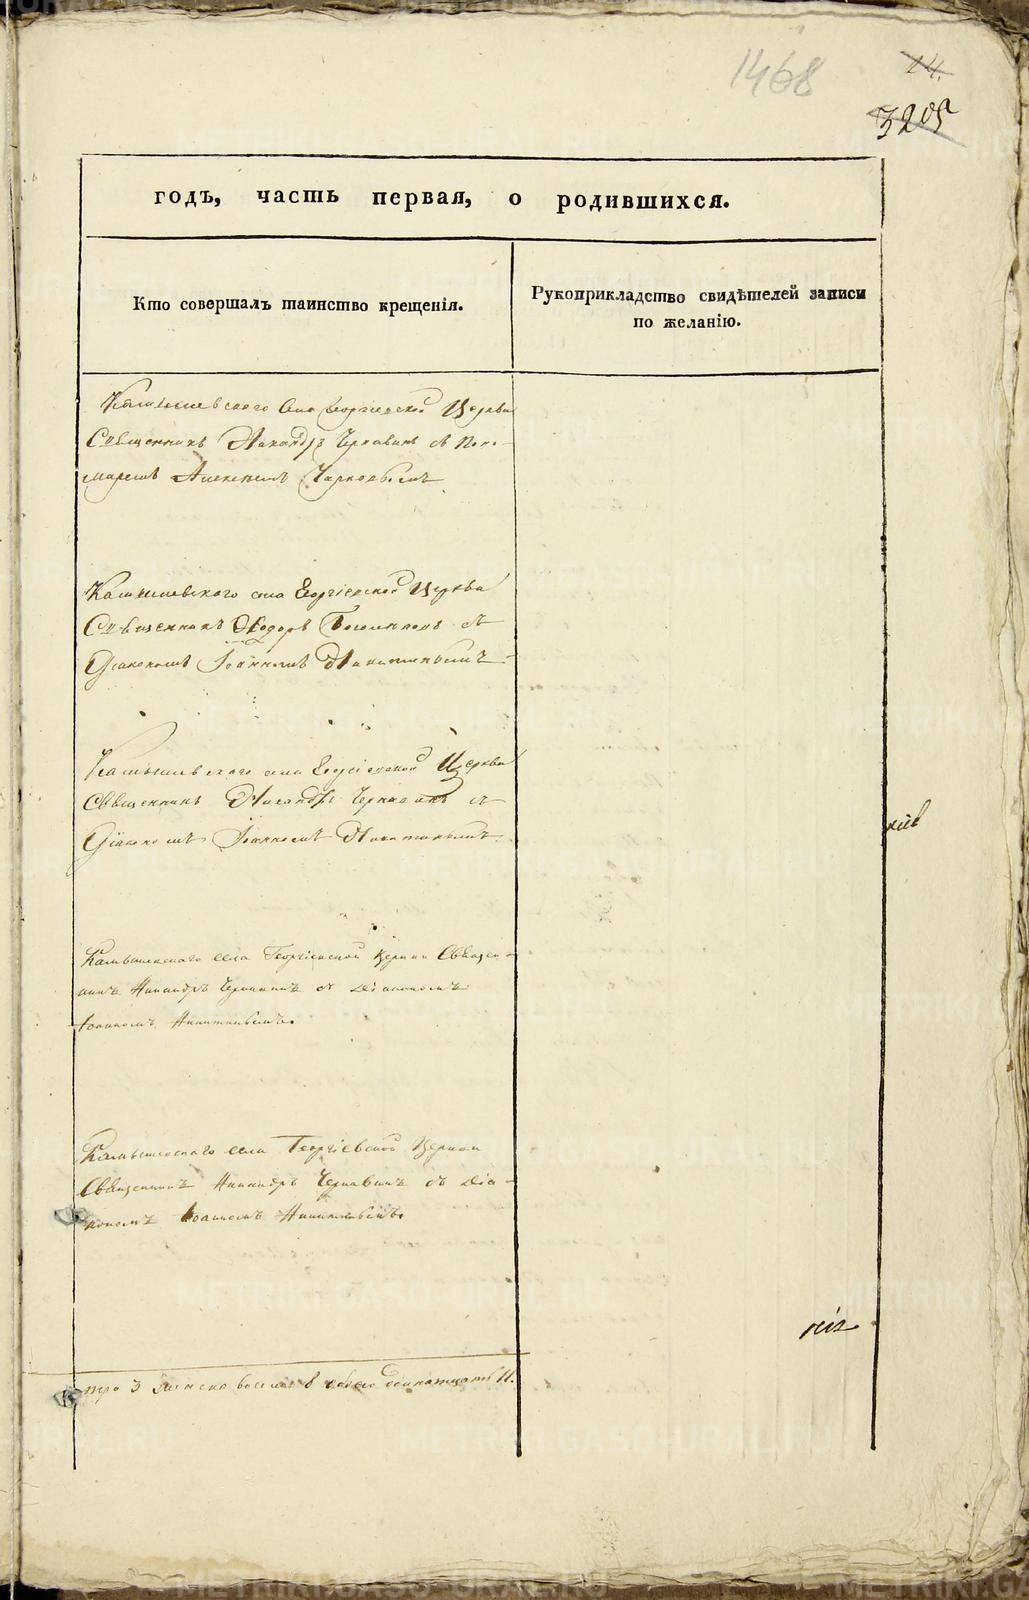 1468
14.
3205
годъ, часть первая, о родившихся.
Кто совершалъ таинство крещенія.
Рукоприкладство свидѣтелей записи
по желанію.
Камышевского села Георгіевской Церкви
Священникъ Никандръ Чернавинъ съ Поно-
маремъ Алексіемъ
Камышевского села Георгіевской Церкви
Священникъ Ѳеодоръ съ
Діакономъ Іоанномъ Никитинымъ
Камышевского села Георгіевской Церкви
Священникъ Никандръ Чернавинъ съ
Діакономъ Іоанномъ Никитинымъ.
Камышевскаго села Георгіевской Церкви Священ-
никъ Никандръ Чернавинъ съ Діакономъ
Іоанномъ Никитинымъ.
Камышевскаго села Георгіевской Церкви
Священникъ Никандръ Чернавинъ съ Діа-
кономъ Іоанномъ Никитинымъ.
3 женска 8 всего одинатцать 11.
METRIKI.GASO-URAL.RU